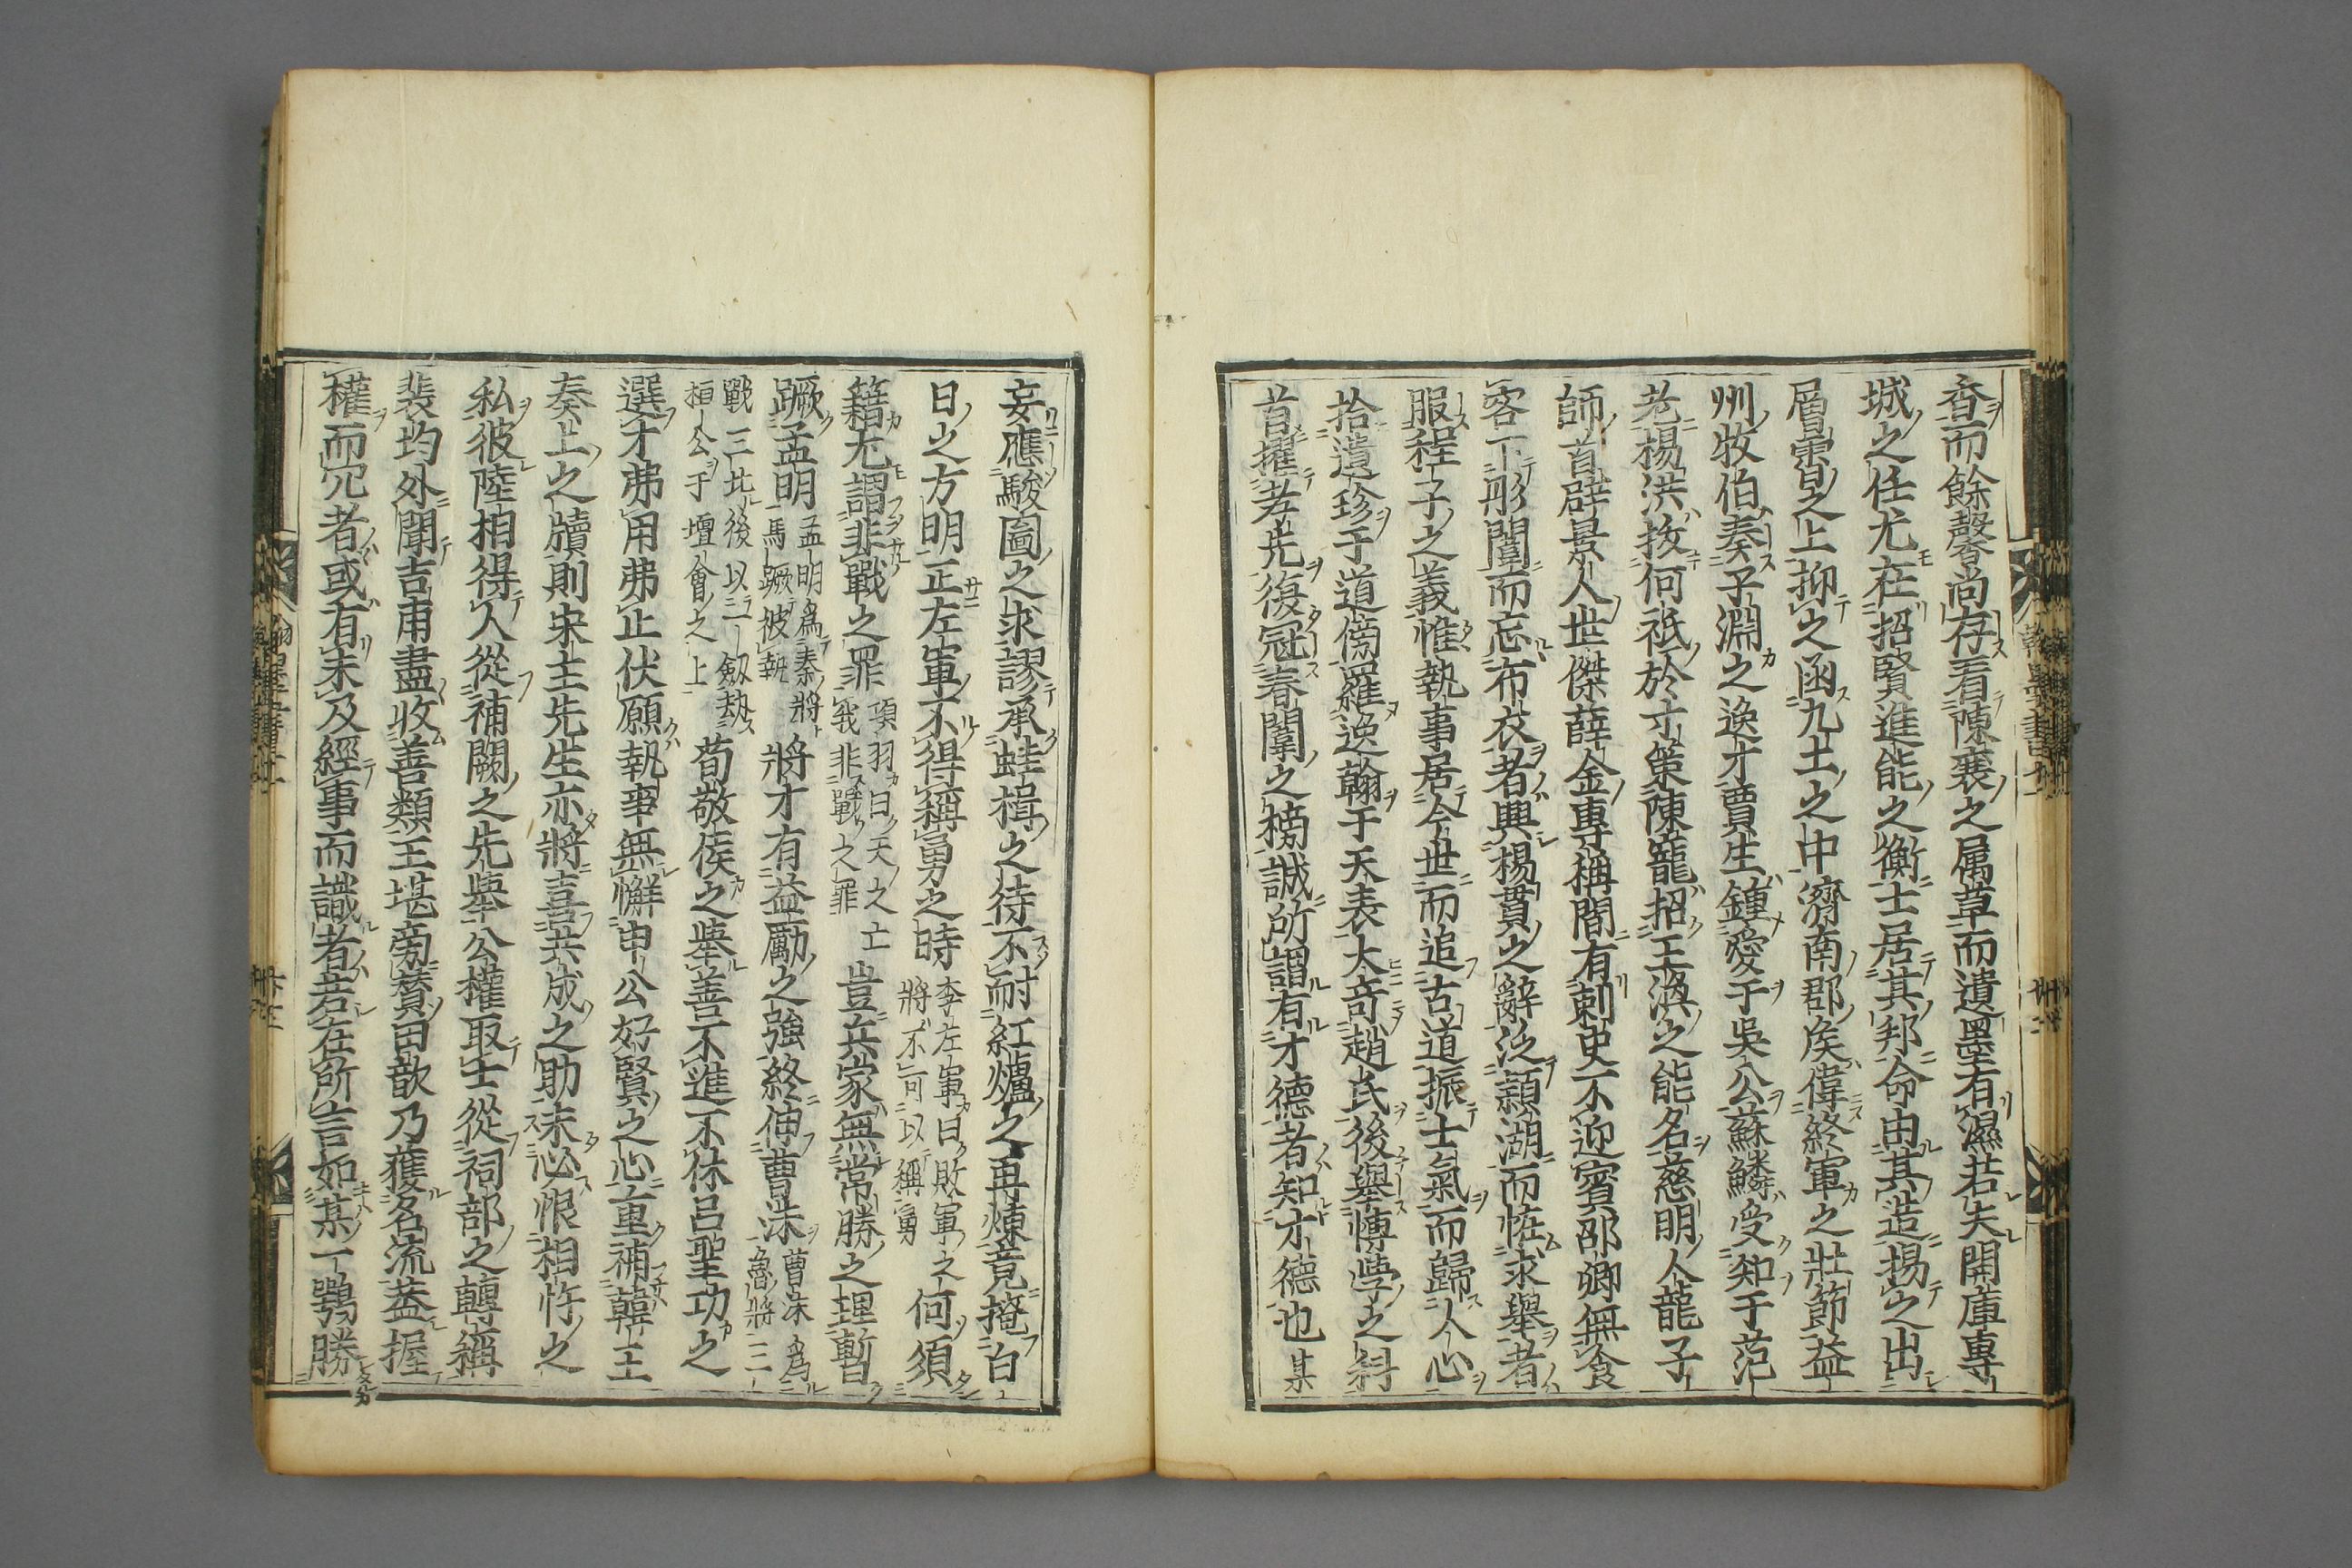 香而餘馨尚存看陳襄之属草而遺墨有濕若夫開庫專
城之任尤在招賢進能之衡士居其邦命由其造揚之出
層霄之上抑之函九土之中濟南郡侯偉終軍之壯節益
州牧伯奏子淵之逸才賈生鍾愛于吳公蘇鱗受知于范
老楊洪拔何祇於寸策陳寵招王渙之能名慈明人龍子
師首辟景人世傑薛金專稱間有刺史不迎賓邵卿無食
客下彤闈而忘布衣者興楊貫之辭泛潁湖而恠求舉者
服程子之義惟執事居今世而追古道振士氣而歸人心
拾遺珍于道傍羅逸翰于天表大奇趙氏後舉博學之科
首擢孝先復冠春闈之榜誠所謂有才德者知才德也某
妄應駿圖之求謬承蛙楫之待不耐紅爐之再煉竟掩白
日之方明正左軍不得稱勇之時李左軍曰敗軍之將不可以稱勇何須
籍尤謂非戰之罪項羽曰天之亡我非戰之罪豈兵家無常勝之理暫
蹶孟明孟明為秦將馬蹶彼執將才有益勵之強終伸曹沬曹沬為魯將三
戰三北後以一劔劫桓公于壇會之上荀敬侯之舉善不進不休呂聖功之
選才弗用弗止伏願執事無懈申公好賢之心重補韓士
奏上之牘則宋主先生亦將喜共成之助未必恨相忤之
私彼陸相得人從補闕之先舉公權取士從祠部之轉稱
裴均外聞吉甫盡收善類王堪旁贊田歆乃獲名流葢握
權而冗者或有未及經事而識者若在所言如某一鶚勝